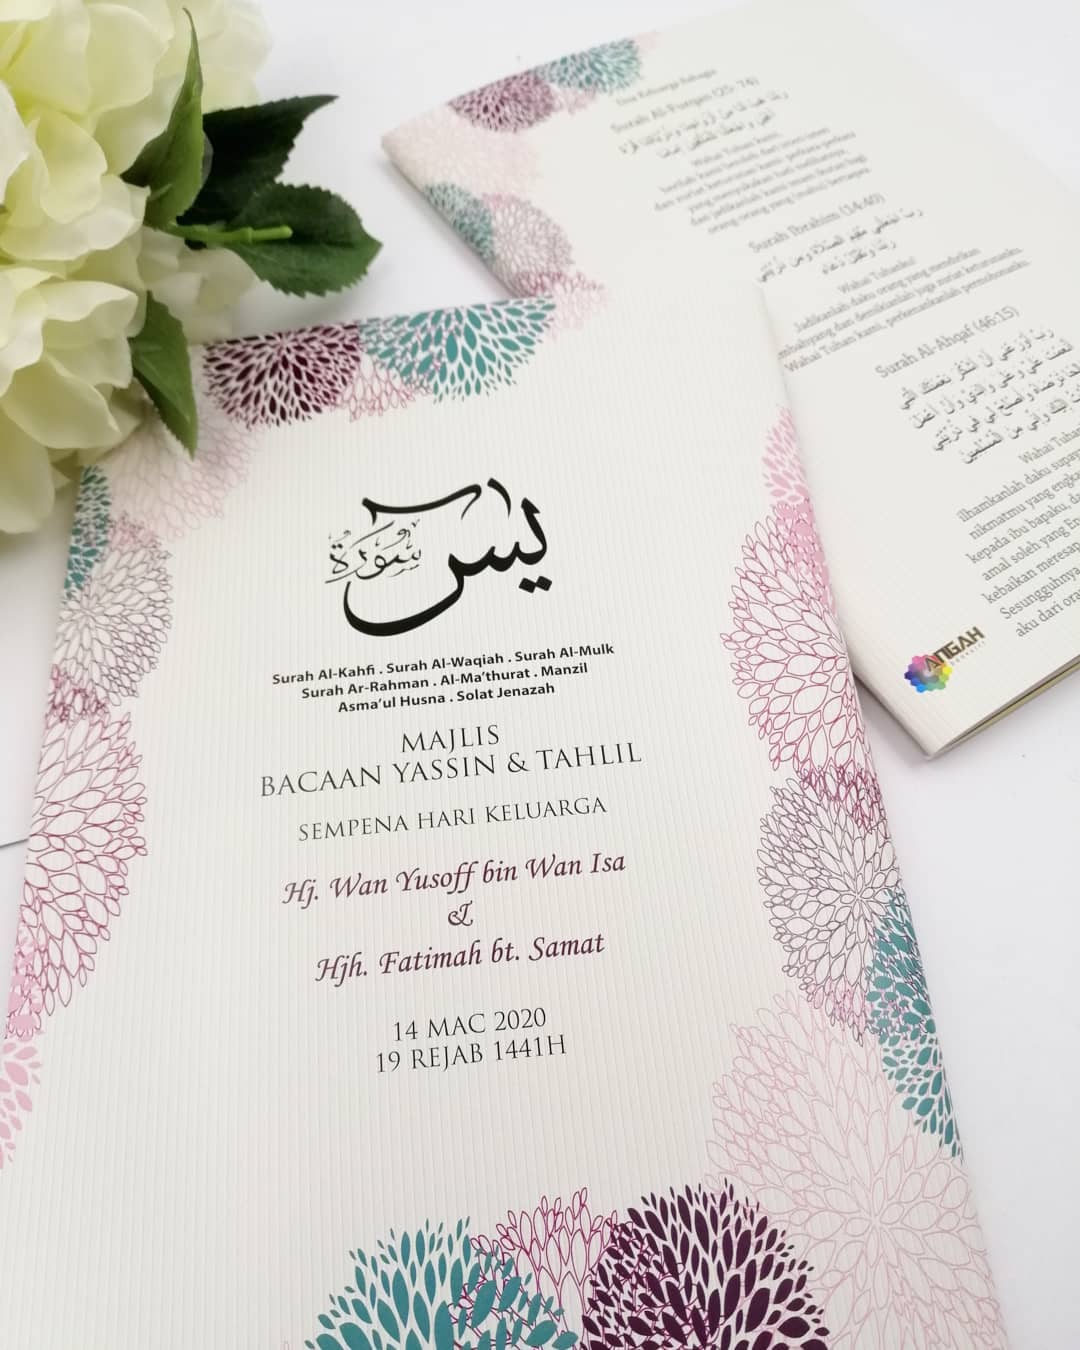 سورة يس
Surah Al-Kahfi . Surah Al-Waqiah . Surah Al-Mulk
Surah Ar-Rahman . Al-Ma'thurat . Manzil
Asma'ul Husna . Solat Jenazah
MAJLIS
BACAAN YASSIN & TAHLIL
SEMPENA HARI KELUARGA
Hj. Wan Yusoff bin Wan Isa
&
Hjh. Fatimah bt. Samat
14 MAC 2020
19 REJAB 1441H
Doa Keluarga Bahagia
Surah Al-Furqan (25: 74)
Wahai Tuhan kami,
Surah Ibrahim (14:40)
رَبِّ اجْعَلْنِي مُقِيمَ الصَّلَاةِ وَمِنْ ذُرِّيَّتِي
رَبَّنَا وَتَقَبَّلْ دُعَاءِ
Wahai Tuhanku!
Jadikanlah daku orang yang mendirikan
embahyang dan demikianlah juga zuriat keturunanku.
Wahai Tuhan kami, perkenankanlah permohonanku.
Surah Al-Ahqaf (46:15)
Wahai Tuha
ilhamkanlah daku supay
nikmatmu yang engka
kepada ibu bapaku, d
amal soleh yang En
kebaikan meresap
Sesungguhnya
aku dari ora
ANGAH